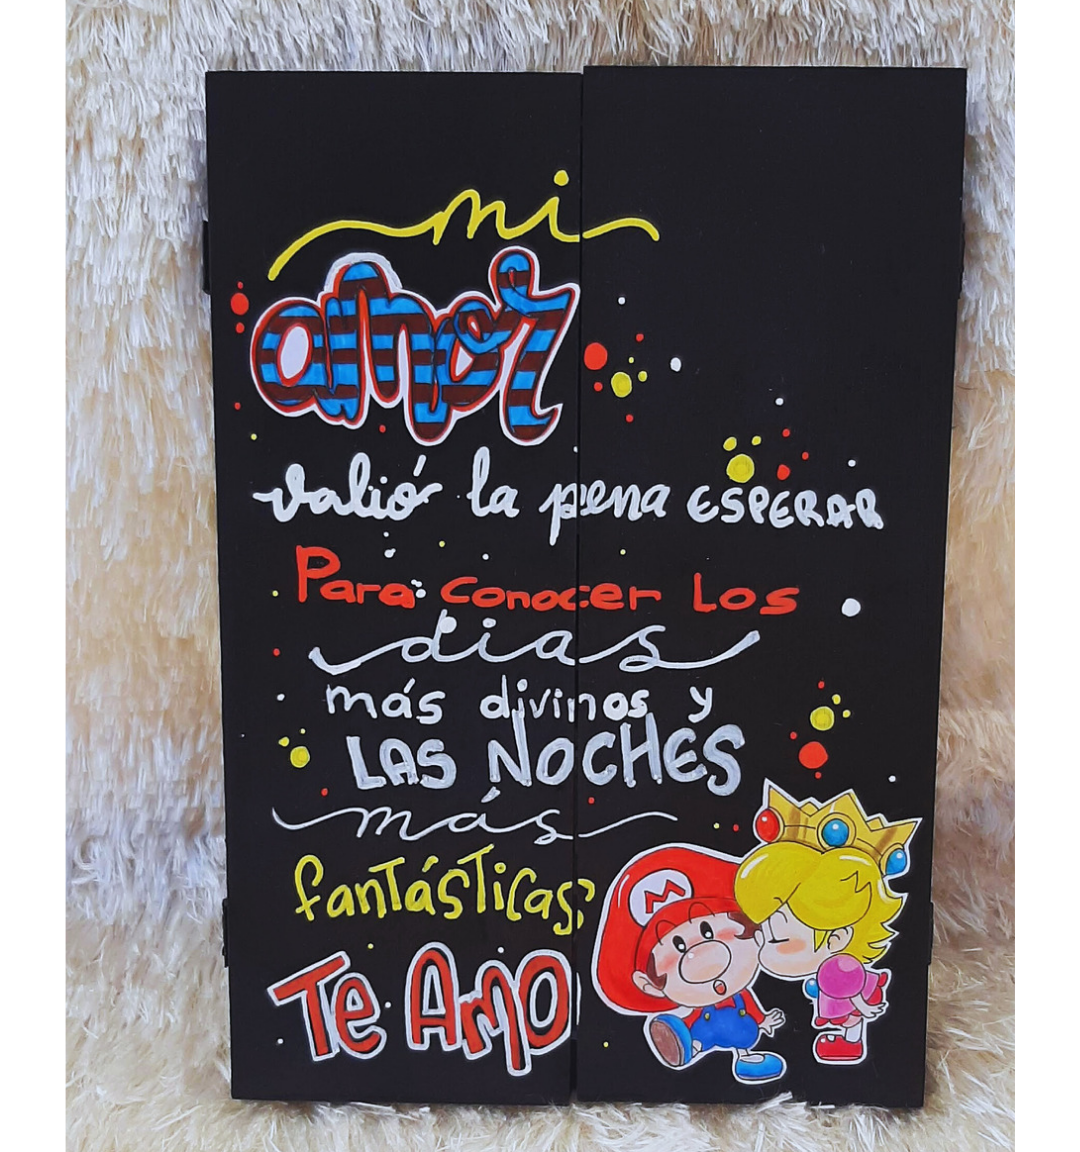 mi
amor
valió la pena ESPERAR
Para conocer Los
dias
más divinos y
LAS NOCHES
más
fantásticas;
Te Amo
M